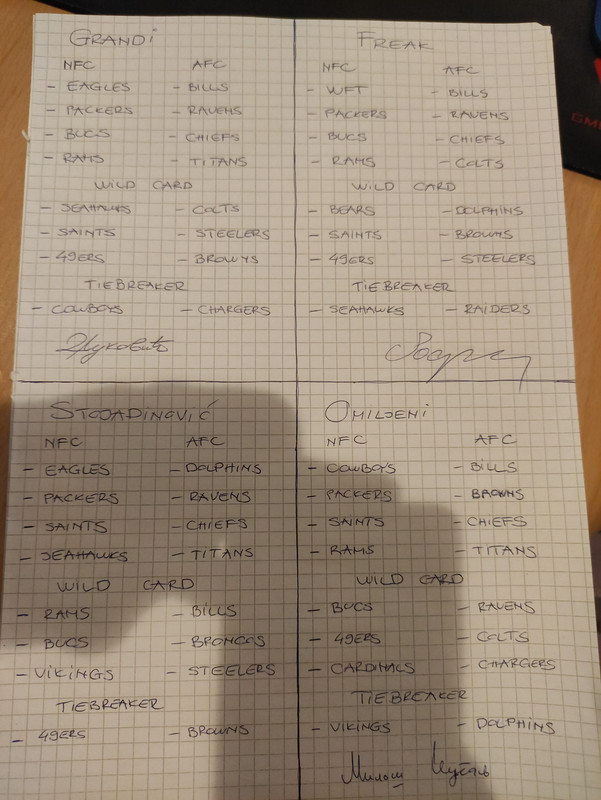 GRANDI
NFC AFC
- EAGLES - BILLS
- PACKERS - RAVENS
- BUCS - CHIEFS
- RAMS - TITANS
WILD CARD
- SEAHAWKS - COLTS
- SAINTS - STEELERS
- 49ERS - BROWNS
TIEBREAKER
- COWBOYS - CHARGERS
FREAK
NFC AFC
- WFT - BILLS
- PACKERS - RAVENS
- BUCS - CHIEFS
- RAMS - COLTS
WILD CARD
- BEARS - DOLPHINS
- SAINTS - BROWNS
- 49ERS - STEELERS
TIEBREAKER
- SEAHAWKS - RAIDERS
STOJADINOVIĆ
NFC AFC
- EAGLES - DOLPHINS
- PACKERS - RAVENS
- SAINTS - CHIEFS
- SEAHAWKS - TITANS
WILD CARD
- RAMS - BILLS
- BUCS - BRONCOS
- VIKINGS - STEELERS
TIEBREAKER
- 49ERS - BROWNS
OMILJENI
NFC AFC
- COWBOYS - BILLS
- PACKERS - BROWNS
- SAINTS - CHIEFS
- RAMS - TITANS
WILD CARD
- BUCS - RAVENS
- 49ERS - COLTS
- CARDINALS - CHARGERS
TIEBREAKER
- VIKINGS - DOLPHINS
Милош